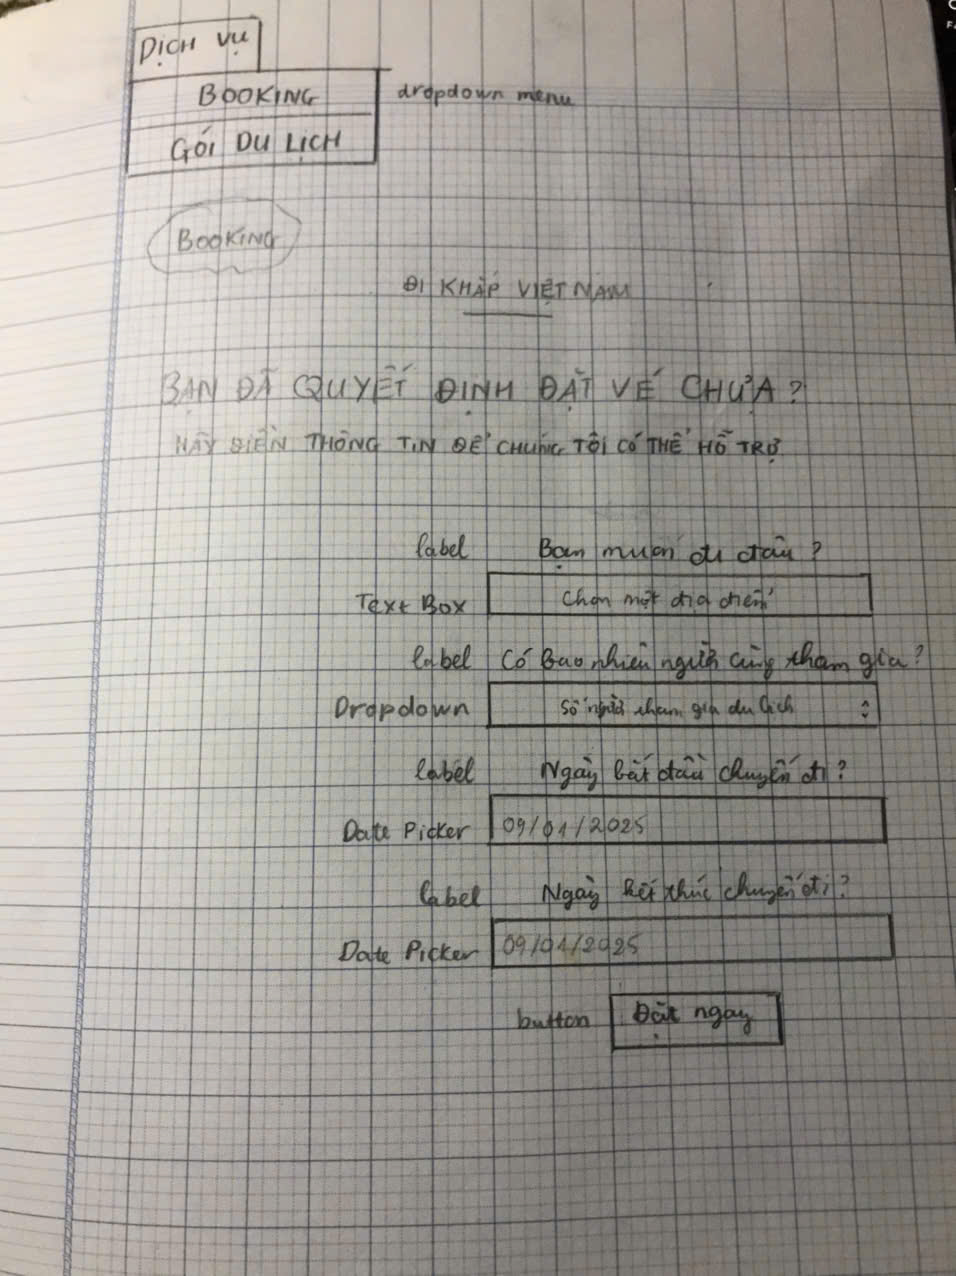 DỊCH VỤ
BOOKING dropdown menu
GÓI DU LỊCH
BOOKING
ĐI KHẮP VIỆT NAM
BẠN ĐÃ QUYẾT ĐỊNH ĐẶT VÉ CHƯA?
HÃY ĐIỀN THÔNG TIN ĐỂ CHÚNG TÔI CÓ THỂ HỖ TRỢ
label Bạn muốn đi đâu?
Text Box Chọn một địa điểm
label Có Bao nhiêu người cùng tham gia?
Dropdown Số người tham gia du lịch
label Ngày bắt đầu chuyến đi?
Date Picker 09/01/2025
label Ngày kết thúc chuyến đi?
Date Picker 09/01/2025
button Đặt ngay